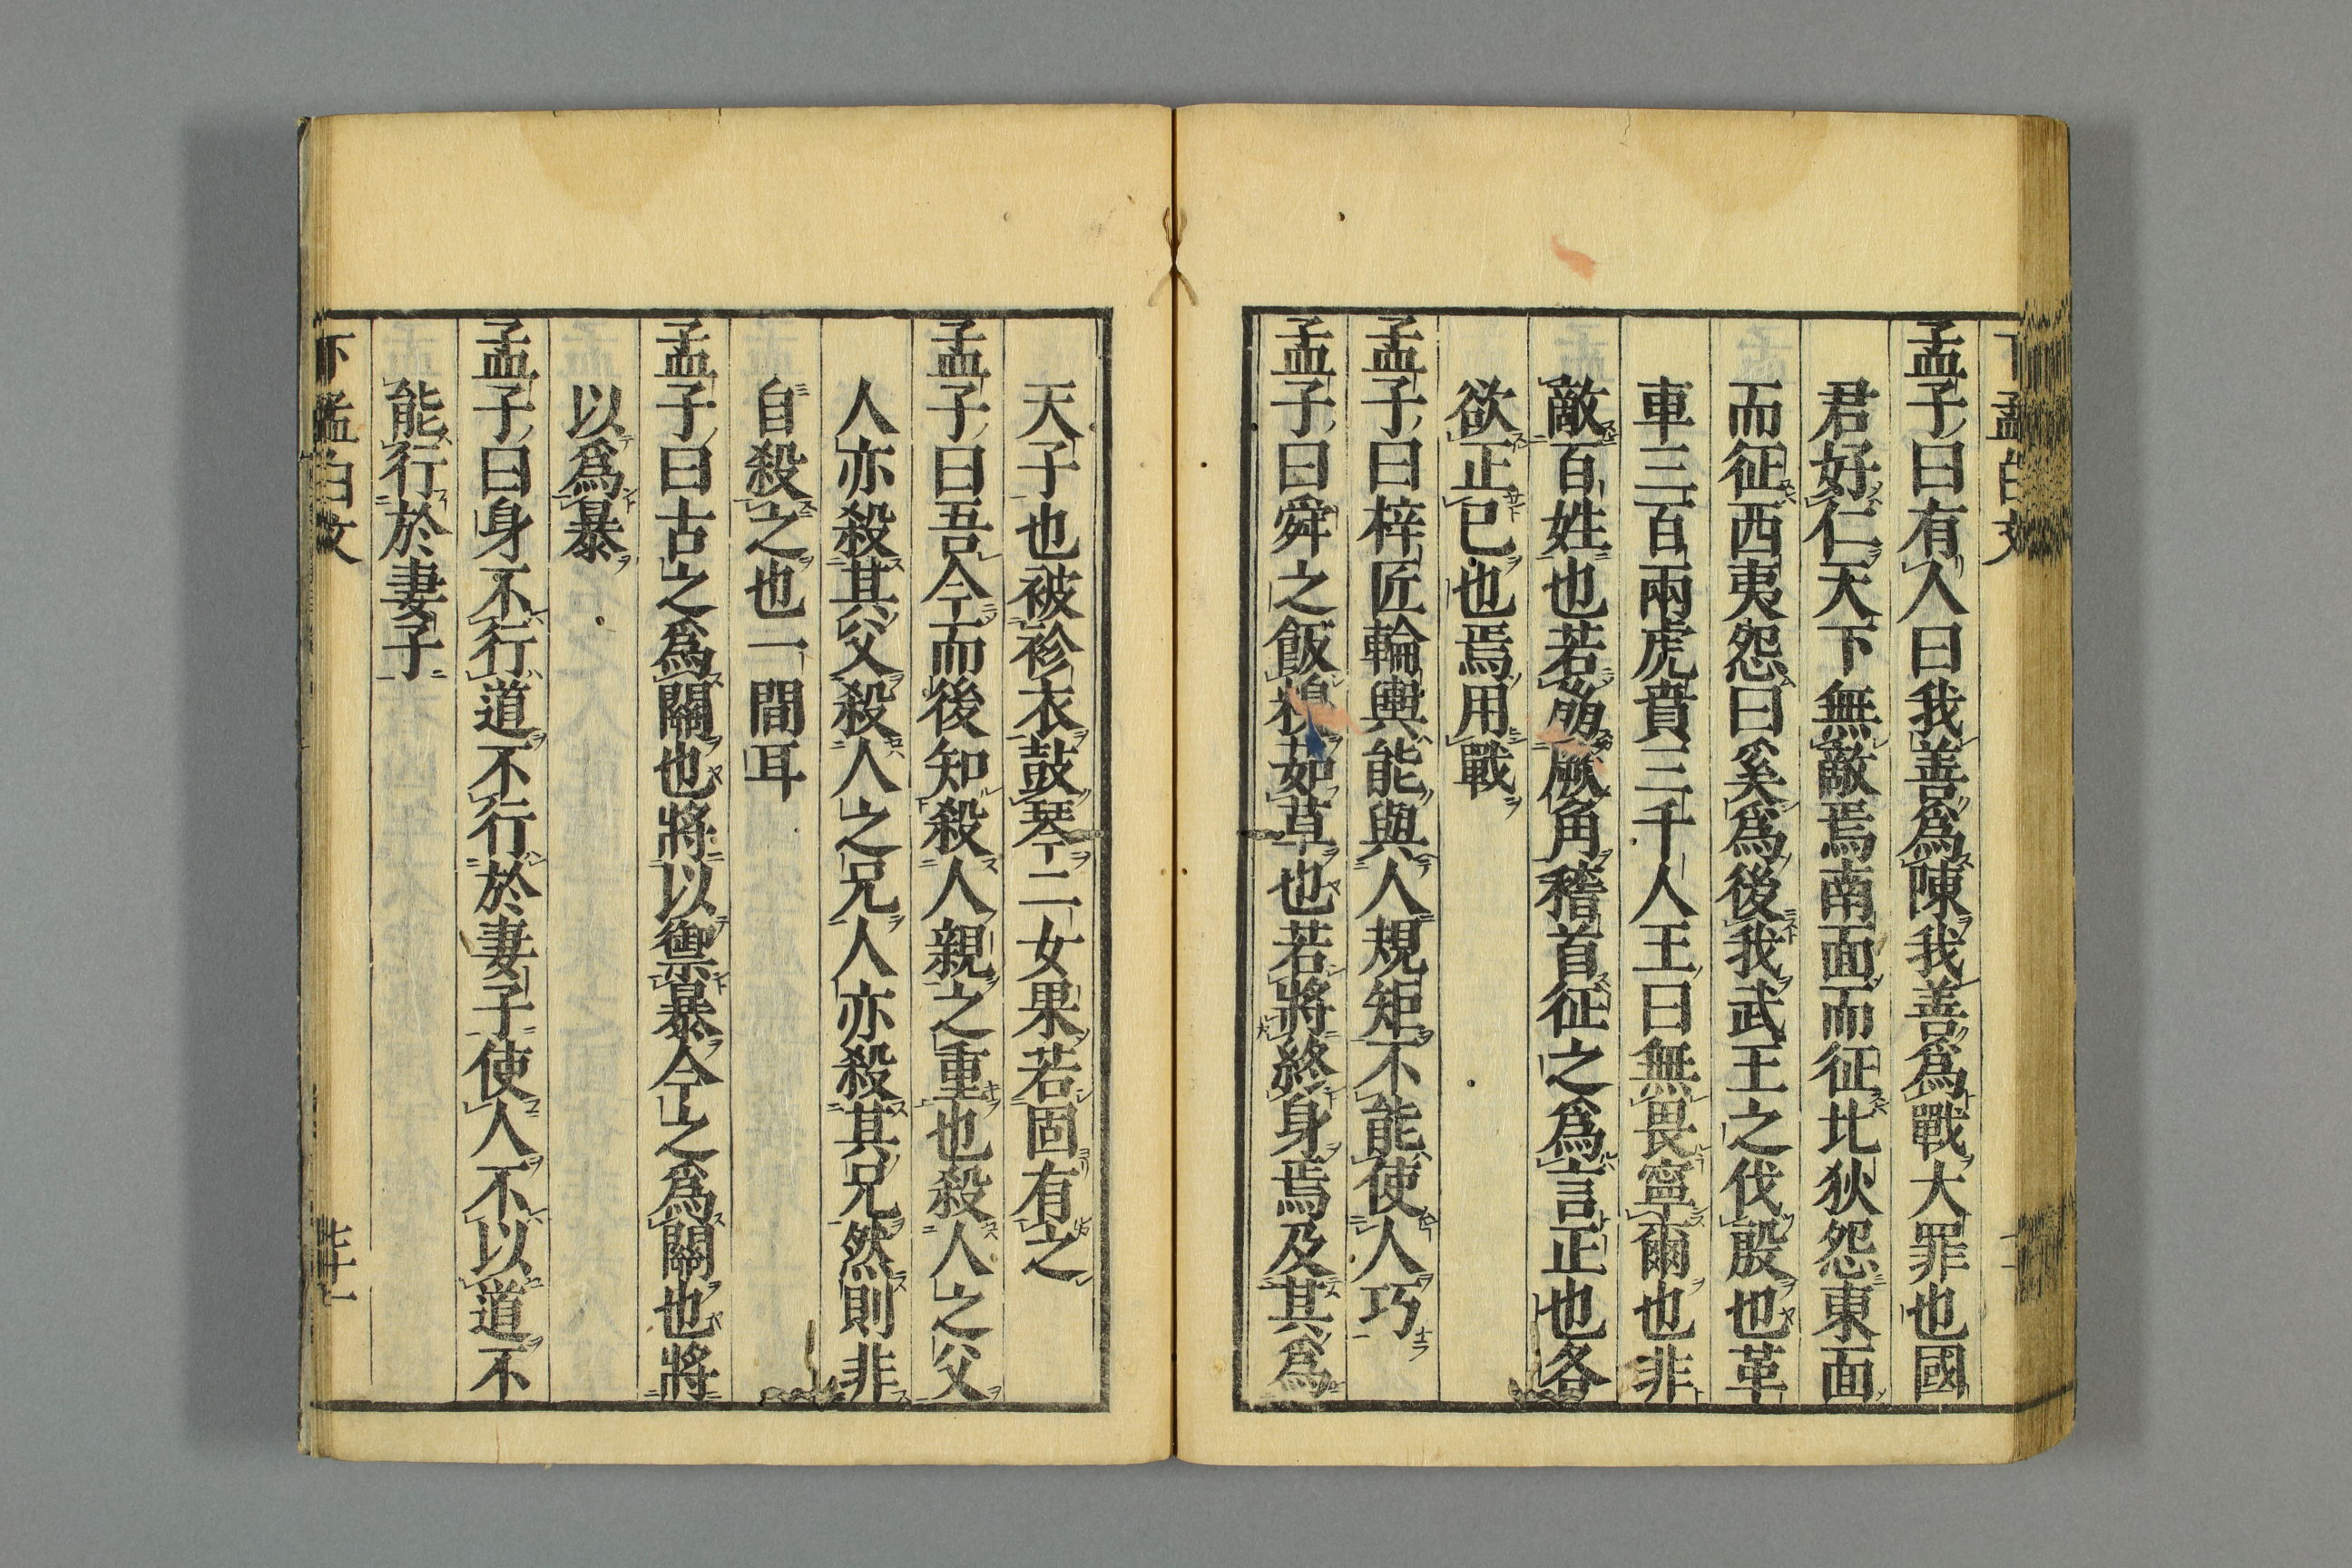 孟子曰有人曰我善爲陳我善爲戰大罪也國
君好仁天下無敵焉南面而征北狄怨東面
而征西夷怨曰奚爲後我武王之伐殷也革
車三百兩虎賁三千人王曰無畏寧爾也非
敵百姓也若崩厥角稽首征之爲言正也各
欲正已也焉用戰
孟子曰梓匠輪輿能與人規矩不能使人巧
孟子曰舜之飯糗茹草也若將終身焉及其爲
天子也被袗衣鼓琴二女果若固有之
孟子曰吾今而後知殺人親之重也殺人之父
人亦殺其父殺人之兄人亦殺其兄然則非
自殺之也一間耳
孟子曰古之爲關也將以禦暴今之爲關也將
以爲暴
孟子曰身不行道不行於妻子使人不以道不
能行於妻子
下孟白文